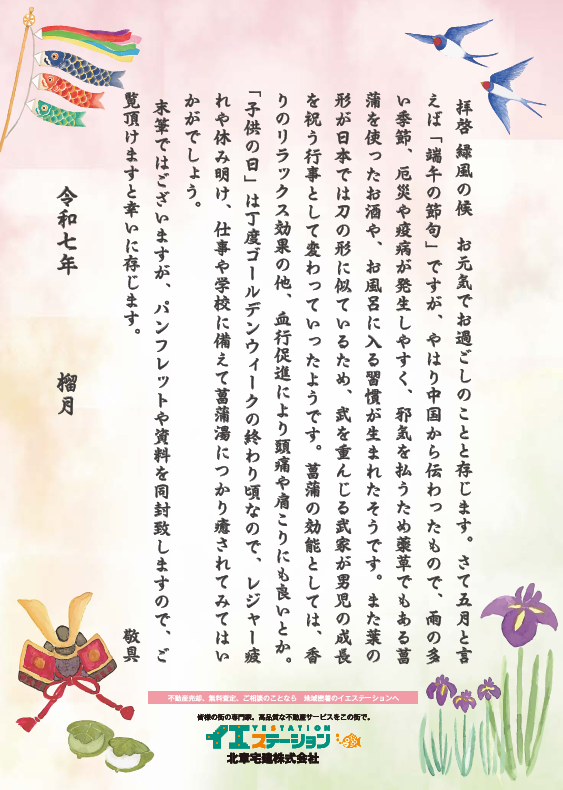 拝啓 緑風の候　お元気でお過ごしのことと存じます。さて五月と言
えば「端午の節句」ですが、やはり中国から伝わったもので、雨の多
い季節、厄災や疫病が発生しやすく、邪気を払うため薬草でもある菖
蒲を使ったお酒や、お風呂に入る習慣が生まれたそうです。また葉の
形が日本では刀の形に似ているため、武を重んじる武家が男児の成長
を祝う行事として変わっていったようです。菖蒲の効能としては、香
りのリラックス効果の他、血行促進により頭痛や肩こりにも良いとか。
「子供の日」は丁度ゴールデンウィークの終わり頃なので、レジャー疲
れや休み明け、仕事や学校に備えて菖蒲湯につかり癒されてみてはい
かがでしょう。
末筆ではございますが、パンフレットや資料を同封致しますので、ご
覧頂けますと幸いに存じます。
敬具
令和七年　榴月
不動産売却、無料査定、ご相談のことなら　地域密着のイエステーションへ
皆様の街の専門家。高品質な不動産サービスをこの街で。
YESTATION
イエステーション
北章宅建株式会社